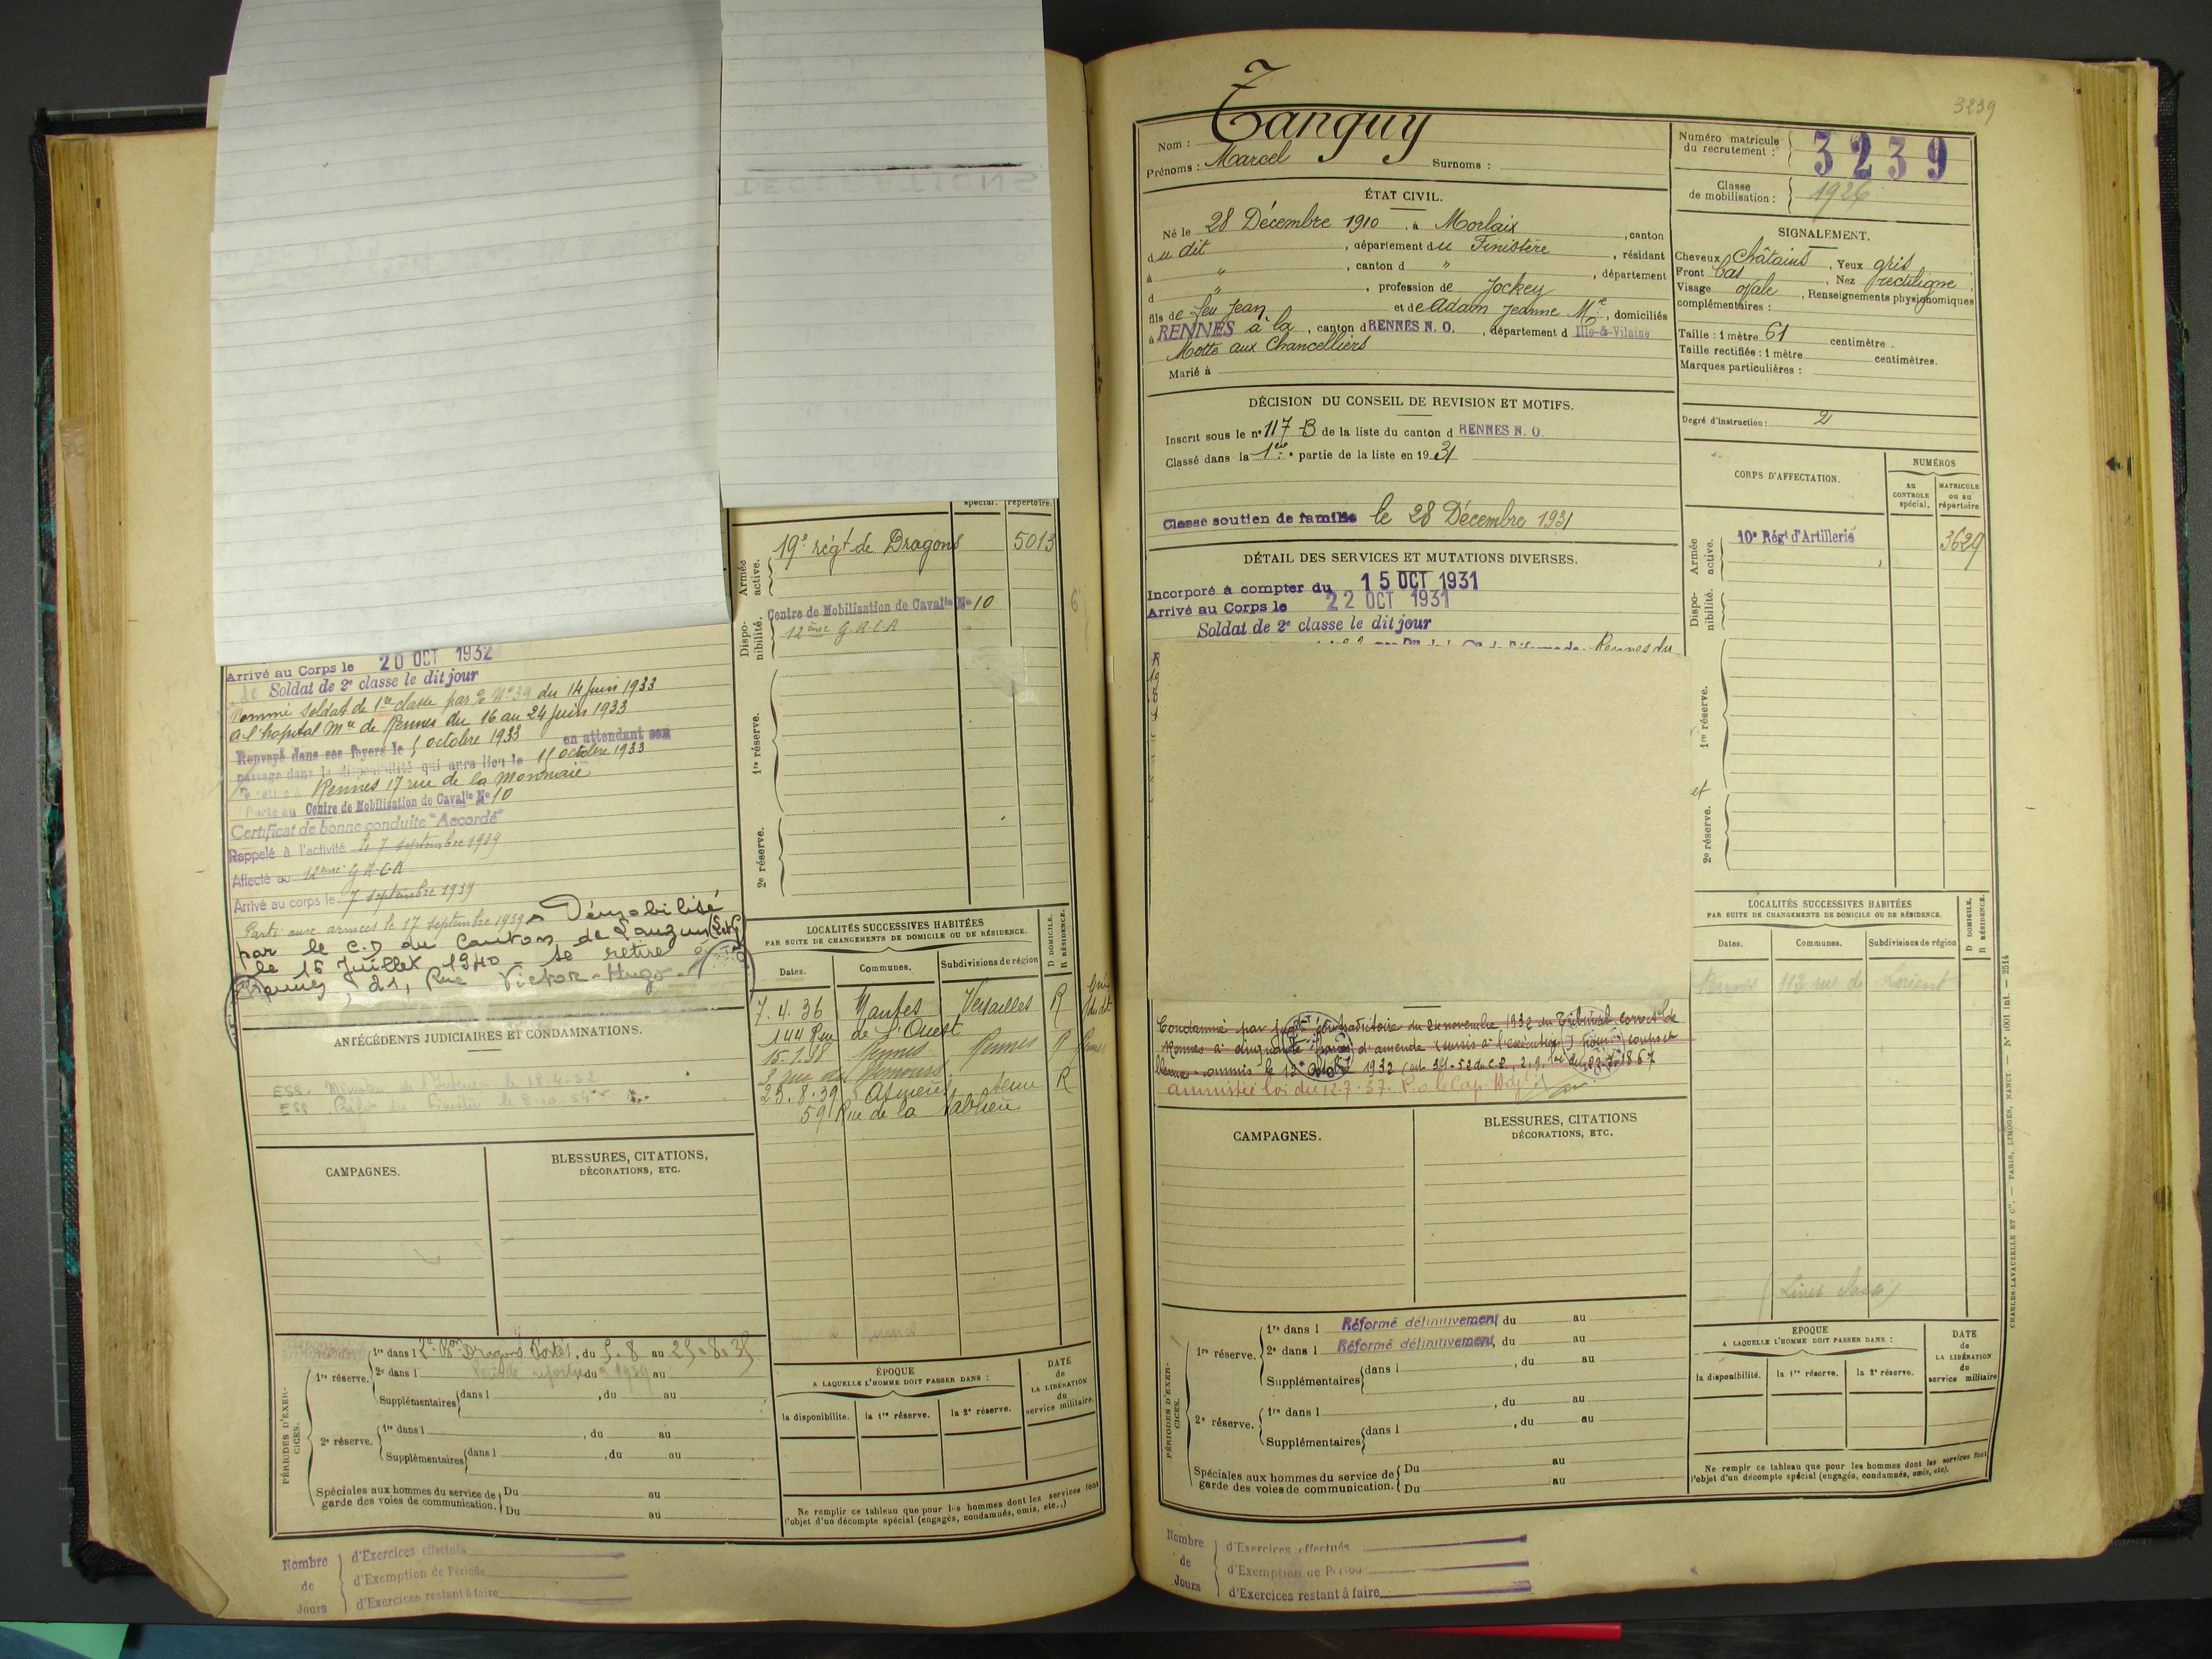 spécial. répertoire.
Armée active.
19e régt de Dragons 5013
Disponibilité.
Centre de Mobilisation de Cavalie No 10
12ème G.R.C.A
1re réserve.
2e réserve.
Arrivé au Corps le 20 OCT 1932
Soldat de 2e classe le dit jour
Nommé soldat de 1re classe par No 39 du 14 Juin 1933
à l'hopital Mre de Rennes du 16 au 24 Juin 1933
Renvoyé dans ses foyers le octobre 1933 en attendant son
passage dans la disponibilité qui aura lieu le octobre 1933
Rennes 17 rue de la Monnaie
Centre de Mobilisation de Cavalie No 10
Certificat de bonne conduite "Accordé"
Rappelé à l'activité le 7 septembre 1939
Affecté au 12ème G.R.C.A
Arrivé au corps le 7 septembre 1939
Parti aux armées le 17 septembre 1939 Démobilisé
par le C.D du Canton de Lauzun
le 15 Juillet 1940 - se retire à
Rennes, 21, Rue Victor-Hugo
ANTÉCÉDENTS JUDICIAIRES ET CONDAMNATIONS.
CAMPAGNES.
BLESSURES, CITATIONS,
DÉCORATIONS, ETC.
LOCALITÉS SUCCESSIVES HABITÉES
PAR SUITE DE CHANGEMENTS DE DOMICILE OU DE RÉSIDENCE.
D DOMICILE.
R RÉSIDENCE.
Dates. Communes. Subdivisions de région
7.4.36 Mantes Versailles R
144 Rue de l'Ouest
Rennes Rennes R
23.8.39 Asnières Seine R
59 Rue de la Sablière
PÉRIODES D'EXERCICES.
1re réserve.
1re dans l Dragons Portés, du 5.8 au 25.8.35
2e dans l du 1939 au
Supplémentaires dans l , du au
2e réserve.
1re dans l , du au
Supplémentaires dans l , du au
Spéciales aux hommes du service de
garde des voies de communication.
Du au
Du au
ÉPOQUE
A LAQUELLE L'HOMME DOIT PASSER DANS :
la disponibilité. la 1re réserve. la 2e réserve.
DATE
de
LA LIBÉRATION
du
service militaire.
Ne remplir ce tableau que pour les hommes dont les services font
l'objet d'un décompte spécial (engagés, condamnés, omis, etc..)
Nombre
de
Jours
d'Exercices effectués
d'Exemption de Période
d'Exercices restant à faire
3239
Nom : Tanguy
Prénoms : Marcel Surnoms :
Numéro matricule
du recrutement : 3239
Classe
de mobilisation : 1926
ÉTAT CIVIL.
Né le 28 Décembre 1910, à Morlaix, canton
du dit, département du Finistère, résidant
à ", canton d ", département
d ", profession de Jockey
fils de feu Jean et de Adam Jeanne Mie, domiciliés
à RENNES à la, canton d RENNES N. O., département d Ille-&-Vilaine
Motte aux Chancelliers
Marié à
SIGNALEMENT.
Cheveux Châtains, Yeux gris
Front bas, Nez rectiligne
Visage ovale, Renseignements physionomiques
complémentaires :
Taille : 1 mètre 61 centimètre.
Taille rectifiée : 1 mètre centimètres.
Marques particulières :
Degré d'instruction : 2
DÉCISION DU CONSEIL DE REVISION ET MOTIFS.
Inscrit sous le no 117 B de la liste du canton d RENNES N. O.
Classé dans la 1ère partie de la liste en 1931
Classé soutien de famille le 28 Décembre 1931
DÉTAIL DES SERVICES ET MUTATIONS DIVERSES.
Incorporé à compter du 15 OCT 1931
Arrivé au Corps le 22 OCT 1931
Soldat de 2e classe le dit jour
Rennes du
CORPS D'AFFECTATION.
NUMÉROS
au CONTROLE spécial.
MATRICULE ou au répertoire
Armée active.
10e Régt d'Artillerie 3629
Disponibilité.
1re réserve.
et
2e réserve.
LOCALITÉS SUCCESSIVES HABITÉES
PAR SUITE DE CHANGEMENTS DE DOMICILE OU DE RÉSIDENCE.
D DOMICILE.
R RÉSIDENCE.
Dates. Communes. Subdivisions de région
Rennes 112 rue de Lorient
Condamné par jugt contradictoire du 24 novembre 1932 du Tribunal correctel de
Rennes à cinquante francs d'amende (sursis à l'exécution) pour coups et
commis le 12 1932
amnistié loi du 12.7.37. P.o le Cap. Adjt
CAMPAGNES.
BLESSURES, CITATIONS
DÉCORATIONS, ETC.
PÉRIODES D'EXERCICES.
1re réserve.
1re dans l Réformé définitivement du au
2e dans l Réformé définitivement, du au
Supplémentaires dans l , du au
2e réserve.
1re dans l , du au
Supplémentaires dans l , du au
Spéciales aux hommes du service de
garde des voies de communication.
Du au
Du au
ÉPOQUE
A LAQUELLE L'HOMME DOIT PASSER DANS :
la disponibilité. la 1re réserve. la 2e réserve.
DATE
de
LA LIBÉRATION
du
service militaire
Ne remplir ce tableau que pour les hommes dont les services font
l'objet d'un décompte spécial (engagés, condamnés, omis, etc.).
CHARLES-LAVAUZELLE ET Cie. — PARIS, LIMOGES, NANCY. — No 1001 int. — 2514
Nombre
de
Jours
d'Exercices effectués
d'Exemption de Période
d'Exercices restant à faire